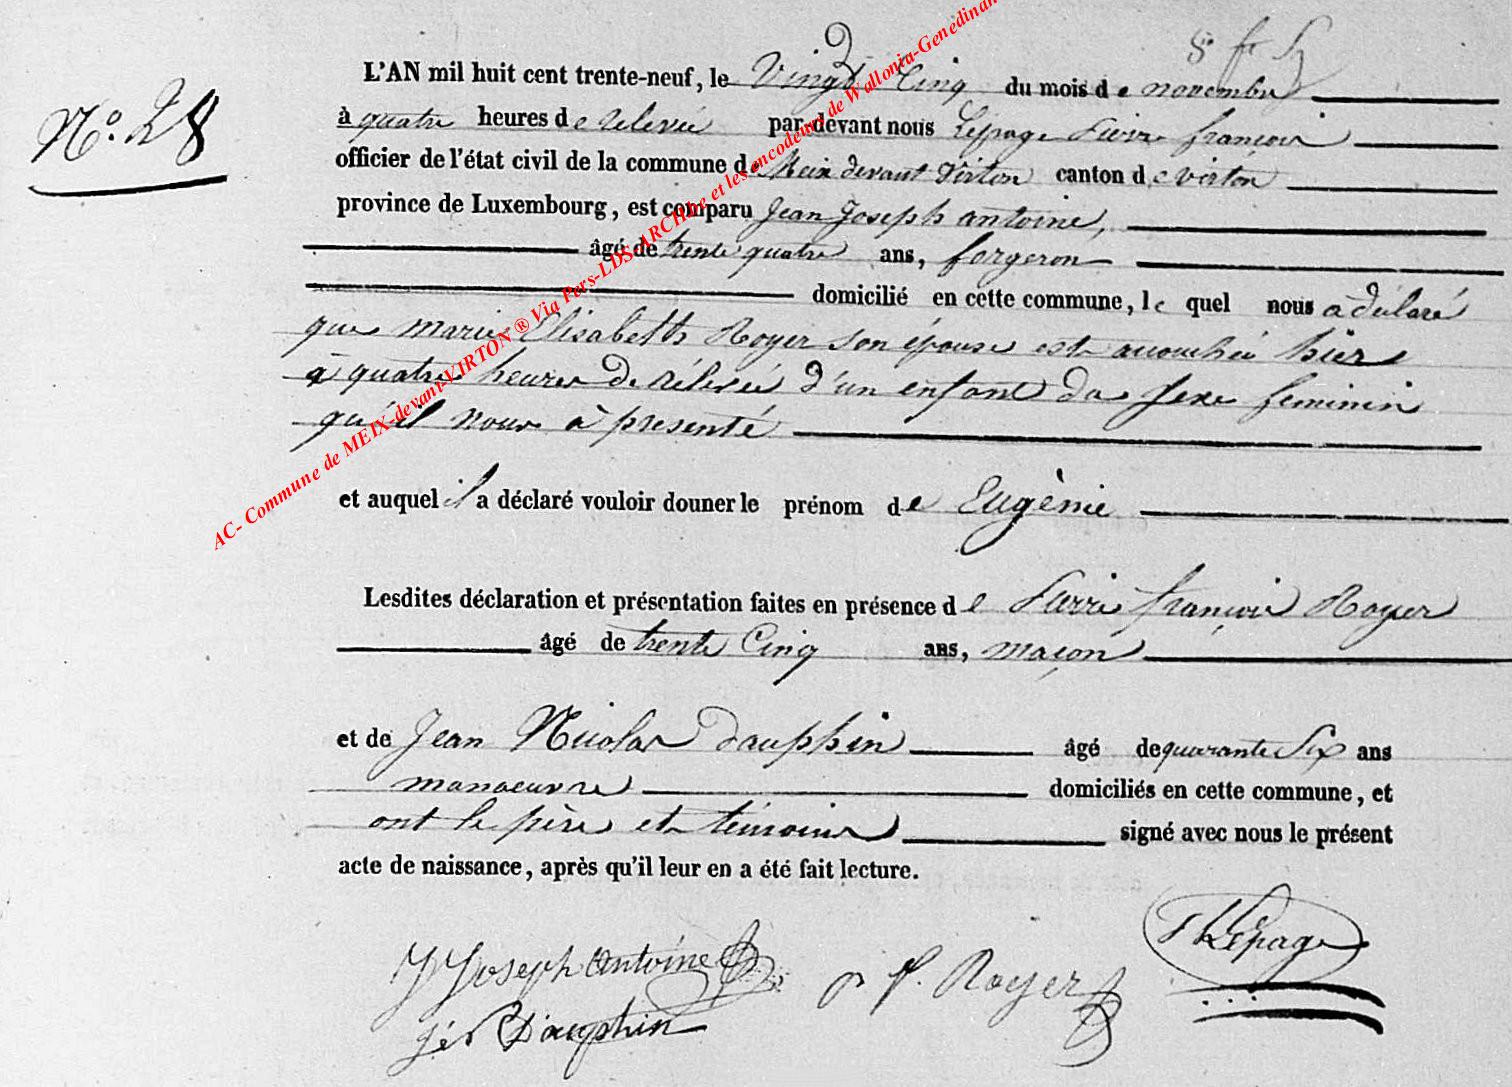 N.o 28
L'AN mil huit cent trente-neuf, le Vingt Cinq du mois de novembre
à quatre heures de relevée par-devant nous Lepage Pierre françois
officier de l'état civil de la commune de Meix devant Virton canton de virton
province de Luxembourg, est comparu Jean Joseph antoine,
âgé de trente quatre ans, forgeron
domicilié en cette commune, le quel nous a déclaré
que marie Elisabeth Royer son épouse est accouchée hier
à quatre heures de rélevée d'un enfant du sexe feminin
qu'il nous à presenté
et auquel il a déclaré vouloir donner le prénom de Eugènie
Lesdites déclaration et présentation faites en présence de Pierre françois Royer
âgé de trente Cinq ans, maçon
et de Jean Nicolas Dauphin âgé de quarante Six ans
manoeuvre domiciliés en cette commune, et
ont le père et témoins signé avec nous le présent
acte de naissance, après qu'il leur en a été fait lecture.
J Joseph Antoine
P f. Royer
Lepage
Dauphin
AC- Commune de MEIX-devant-VIRTON ® Via Pers-LDS-ARCHbe et les encodeurs de Wallonia-Genedinan